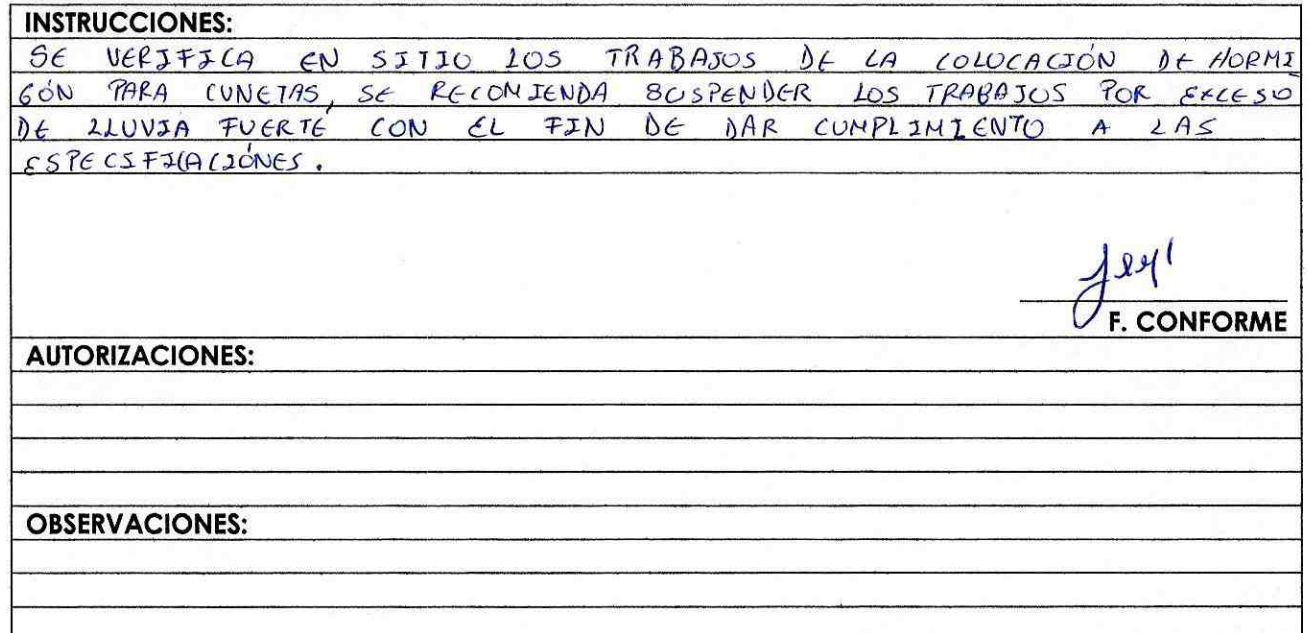 INSTRUCCIONES:
SE VERIFICA EN SITIO LOS TRABAJOS DE LA COLOCACIÓN DE HORMI
GÓN PARA CUNETAS, SE RECOMIENDA SUSPENDER LOS TRABAJOS POR EXCESO
DE LLUVIA FUERTE CON EL FIN DE DAR CUMPLIMIENTO A LAS
ESPECIFICACIÓNES.
F. CONFORME
AUTORIZACIONES:
OBSERVACIONES: